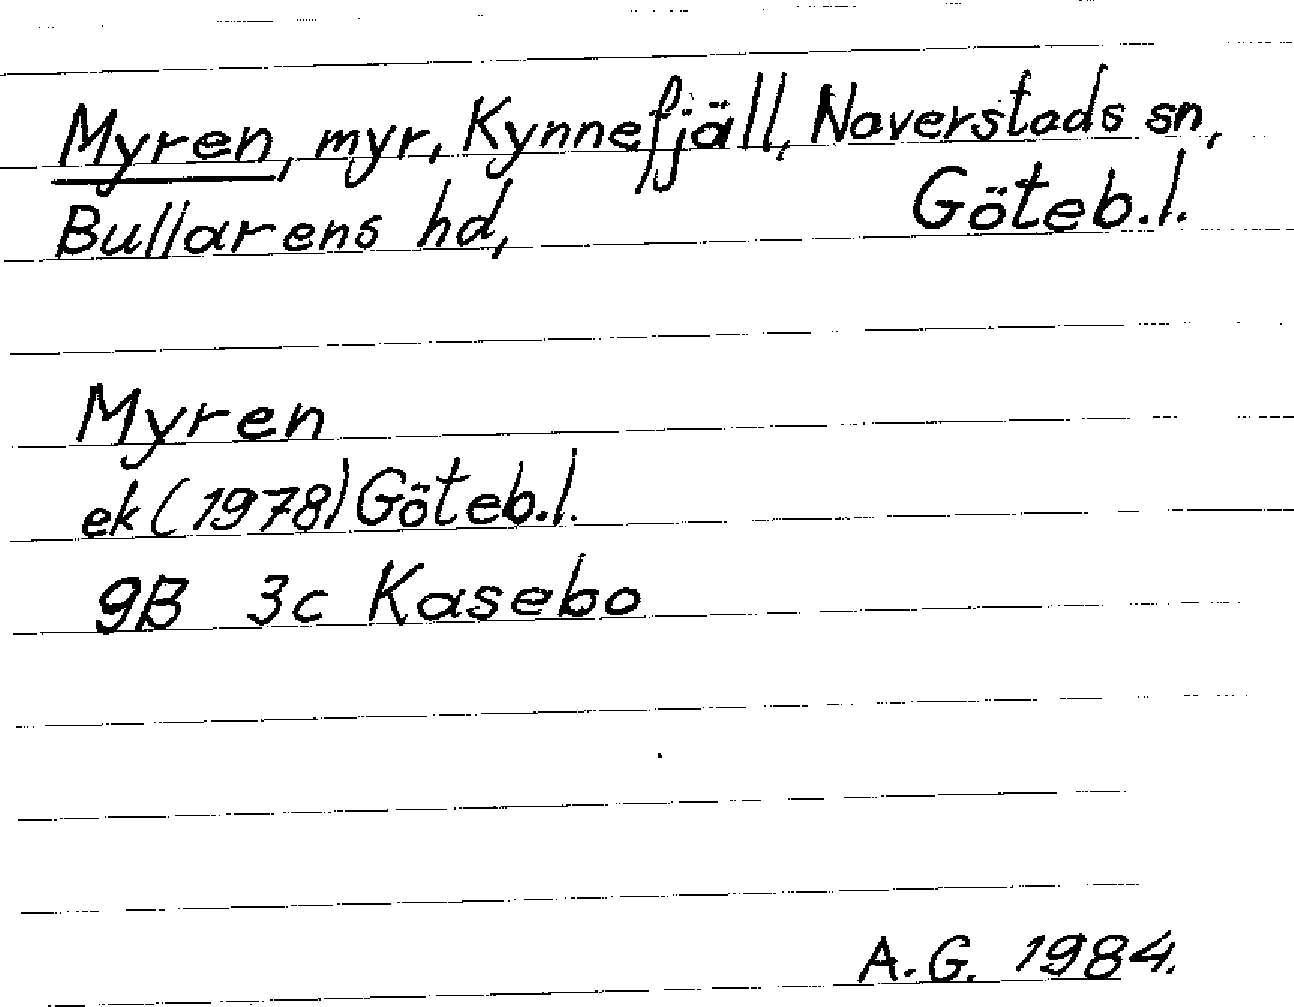 Myren, myr, Kynnefjäll, Naverstads sn,
Bullarens hd, Göteb.l.
Myren
ek (1978) Göteb.l.
9B 3c Kasebo
A.G. 1984.